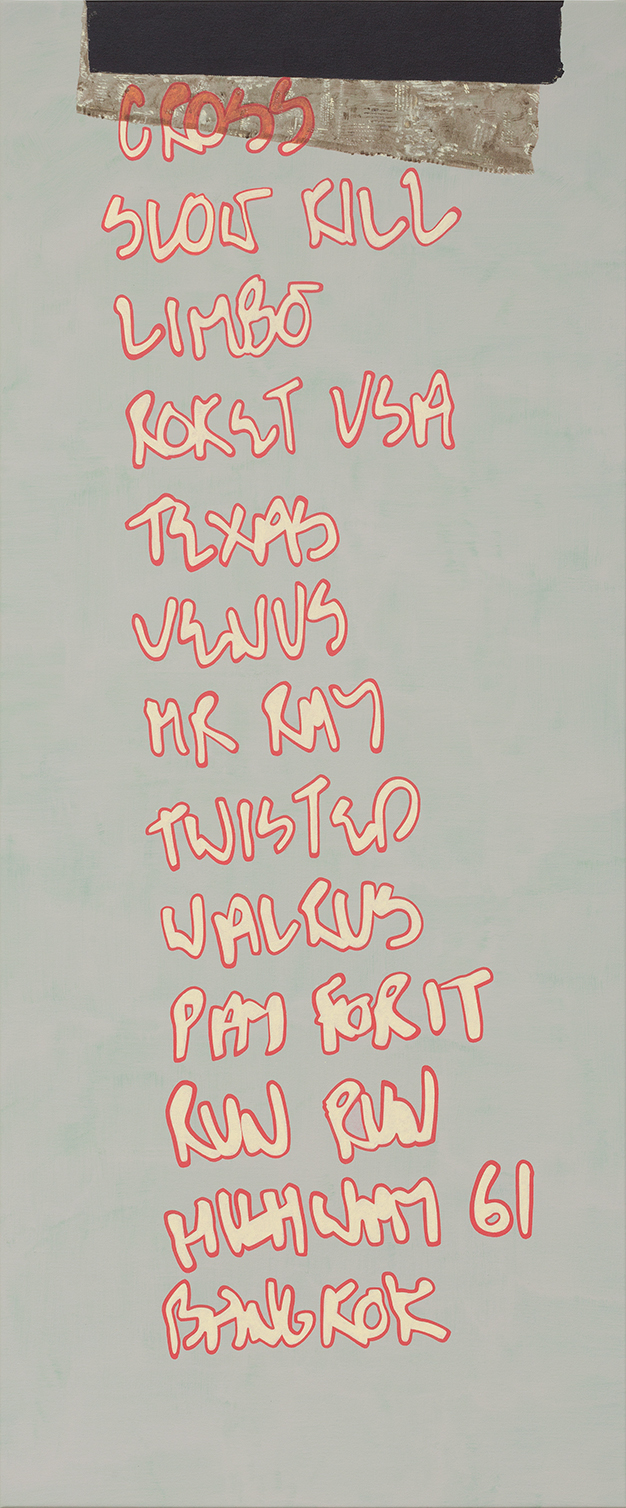 CROSS
SLOW KILL
LIMBO
ROKET USA
TEXAS
VENUS
MR RAY
TWISTED
WALRUS
PAY FOR IT
RUN RUN
HIGHWAY 61
BANGKOK